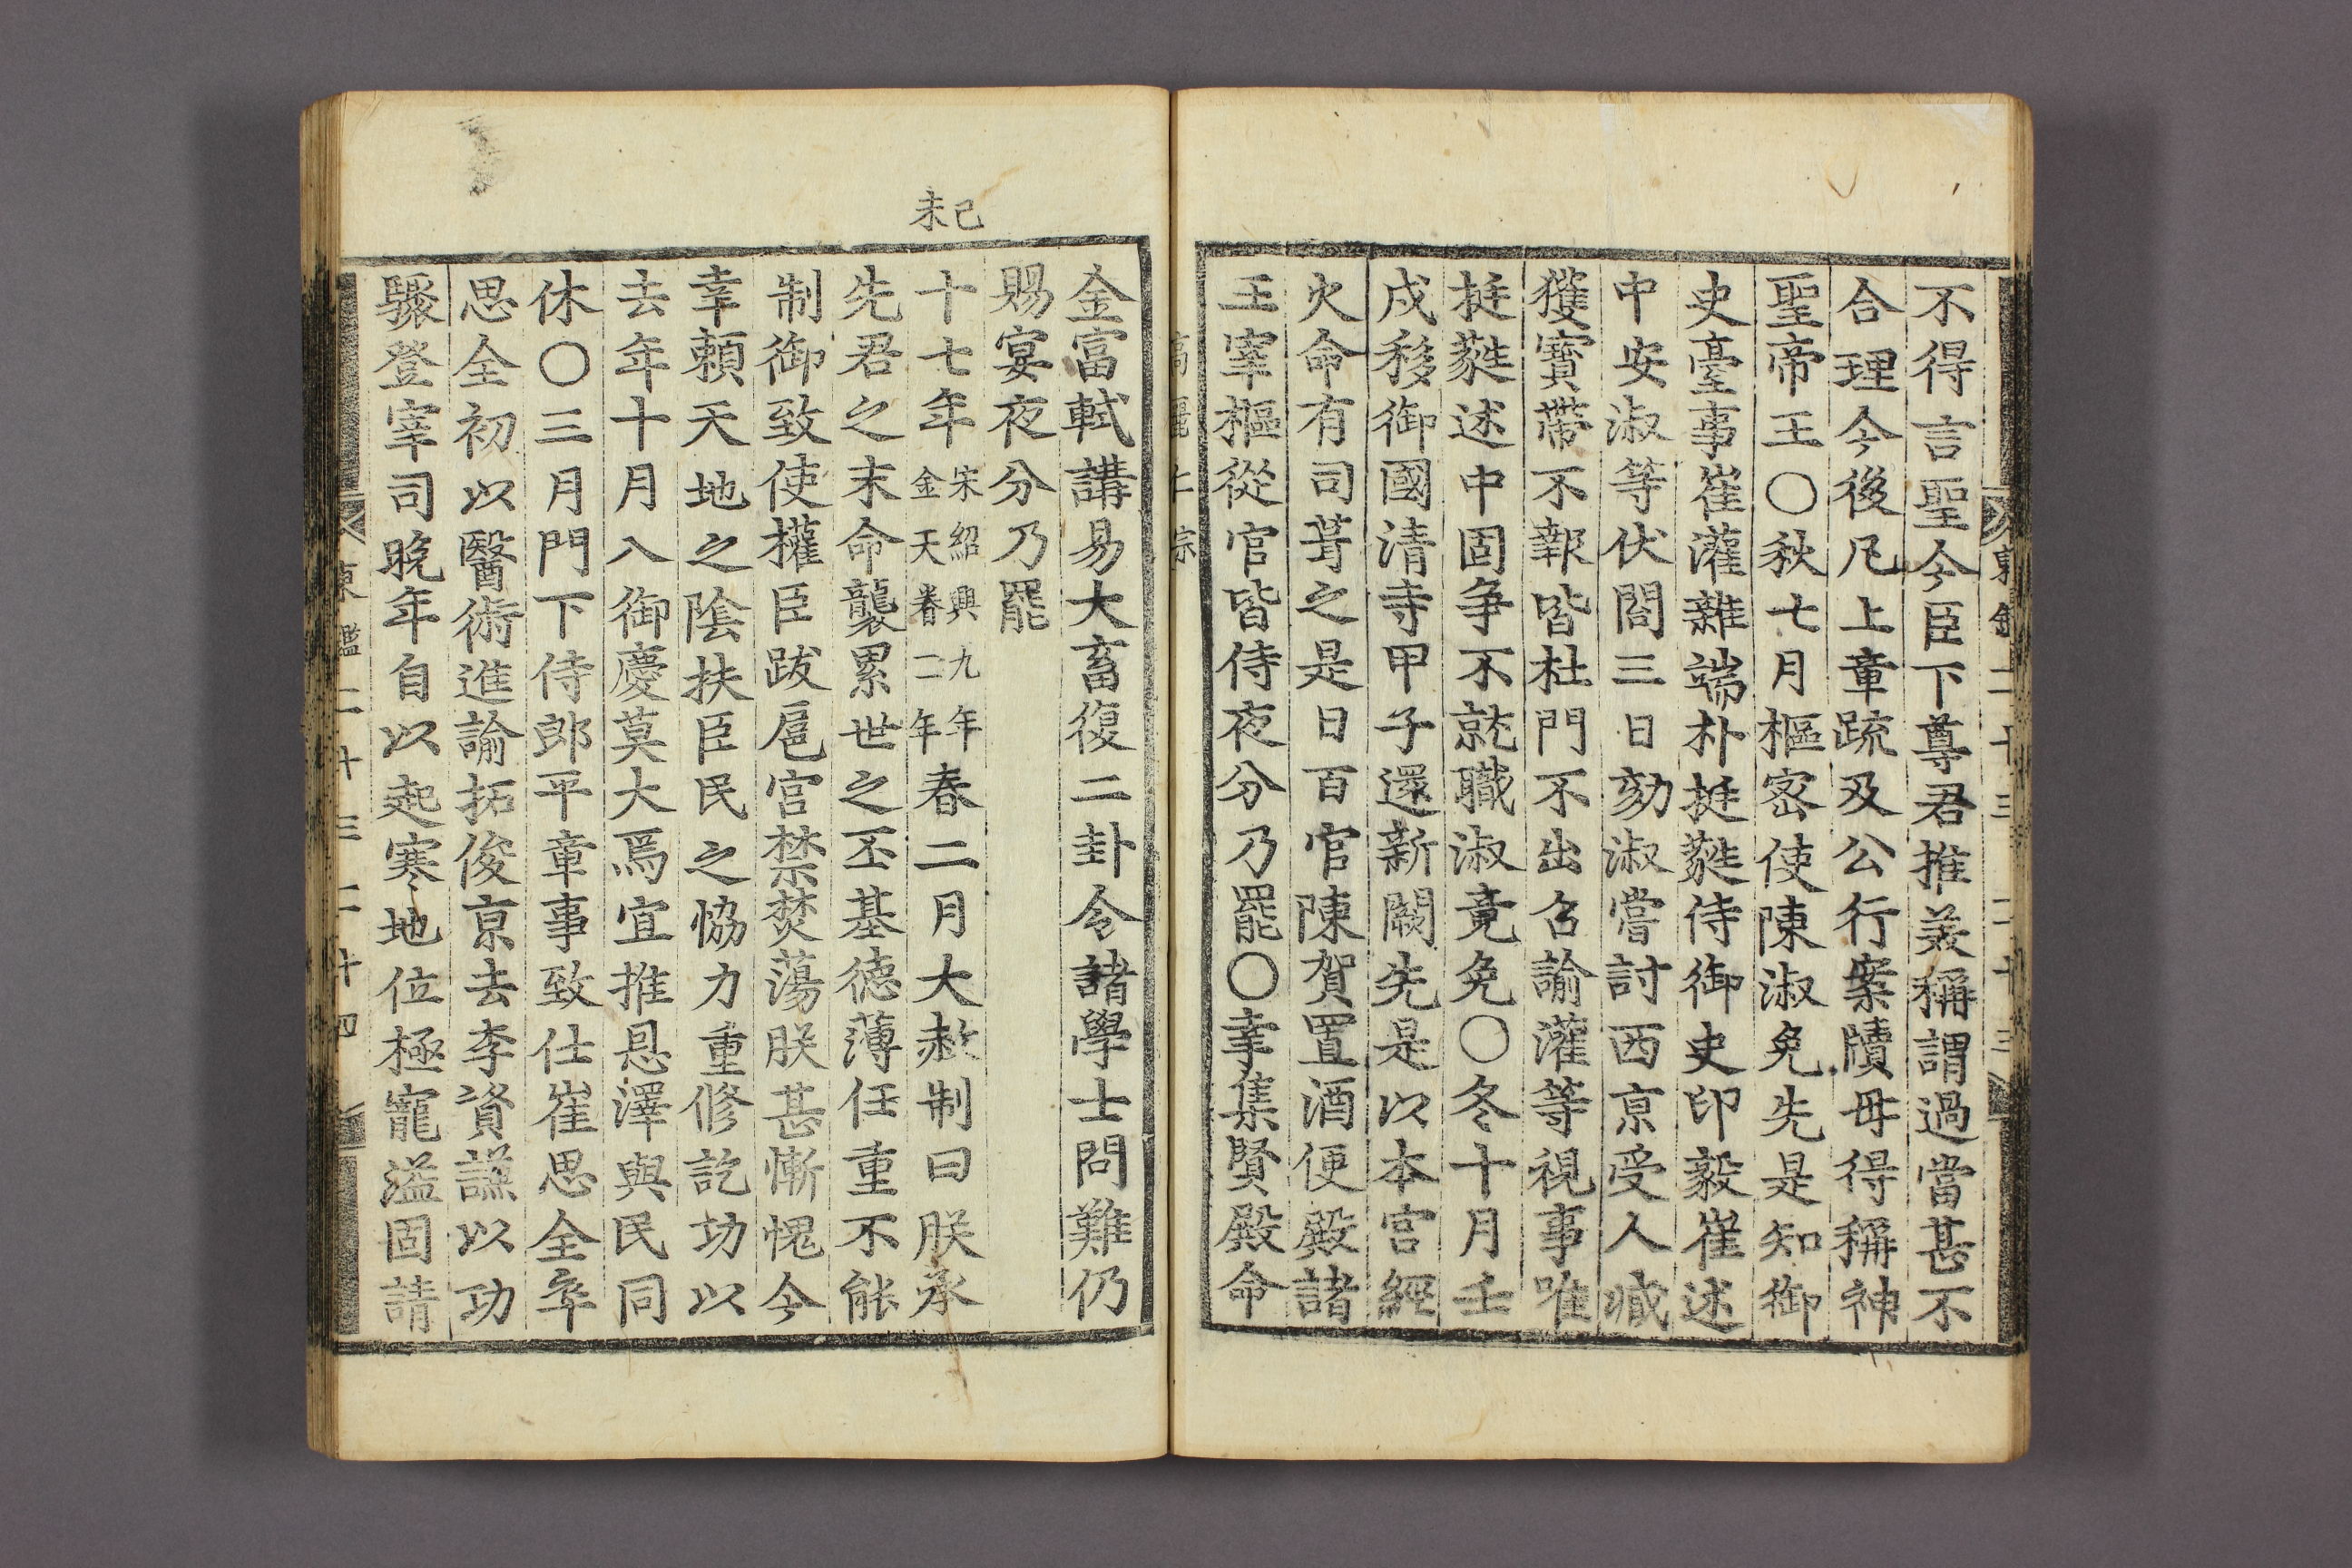 不得言聖今臣下尊君推美稱謂過當甚不
合理今後凡上章疏及公行案牘毋得稱神
聖帝王○秋七月樞密使陳淑免先是知御
史臺事崔灌雜端朴挺蕤侍御史印毅崔述
中安淑等伏閤三日劾淑嘗討西京受人臧
獲寳帶不報皆杜門不出召諭灌等視事唯
挺蕤述中固争不就職淑竟免○冬十月壬
戌移御國清寺甲子還新闕先是以本宮經
火命有司葺之是日百官陳賀置酒便殿諸
王宰樞從官皆侍夜分乃罷○幸集賢殿命
高麗仁宗
己未
金富軾講易大畜復二卦令諸學士問難仍
賜宴夜分乃罷
十七年宋紹興九年金天眷二年春二月大赦制曰朕承
先君之末命襲累世之丕基德薄任重不能
制御致使權臣跋扈宫禁焚蕩朕甚慚愧今
幸頼天地之陰扶臣民之恊力重修訖功以
去年十月入御慶莫大焉宜推恩澤與民同
休○三月門下侍郎平章事致仕崔思全卒
思全初以醫術進諭拓俊京去李資謙以功
驟登宰司晩年自以起寒地位極寵溢固請
東鑑二十三 二十四